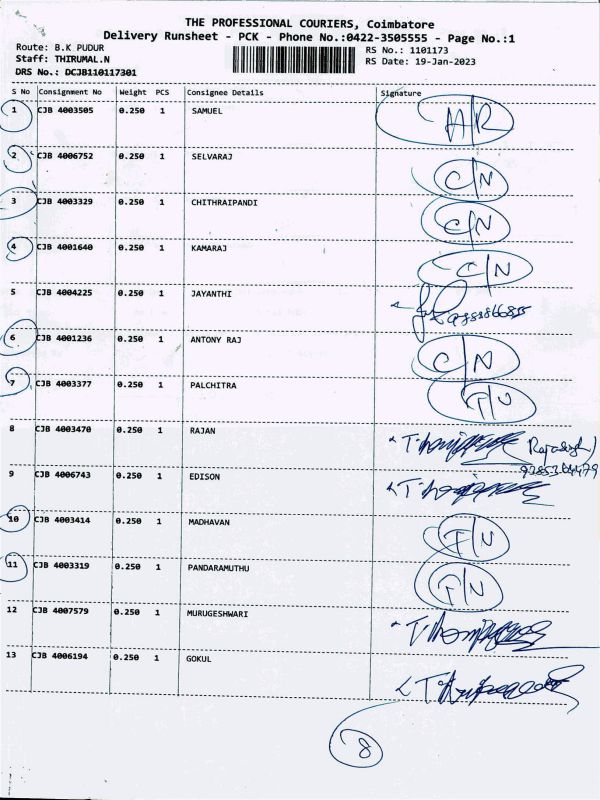 THE PROFESSIONAL COURIERS, Coimbatore
Delivery Runsheet - PCK - Phone No.:0422-3505555 - Page No.:1
Route: B.K PUDUR
RS No.: 1101173
Staff: THIRUMAL.N
RS Date: 19-Jan-2023
DRS No.: DCJB110117301
S No Consignment No Weight PCS Consignee Details Signature
1 CJB 4003505 0.250 1 SAMUEL A/R
2 CJB 4006752 0.250 1 SELVARAJ C/N
3 CJB 4003329 0.250 1 CHITHRAIPANDI C/N
4 CJB 4001640 0.250 1 KAMARAJ C/N
5 CJB 4004225 0.250 1 JAYANTHI
6 CJB 4001236 0.250 1 ANTONY RAJ C/N
7 CJB 4003377 0.250 1 PALCHITRA T/N
8 CJB 4003470 0.250 1 RAJAN
9 CJB 4006743 0.250 1 EDISON
10 CJB 4003414 0.250 1 MADHAVAN T/N
11 CJB 4003319 0.250 1 PANDARAMUTHU T/N
12 CJB 4007579 0.250 1 MURUGESHWARI
13 CJB 4006194 0.250 1 GOKUL
8